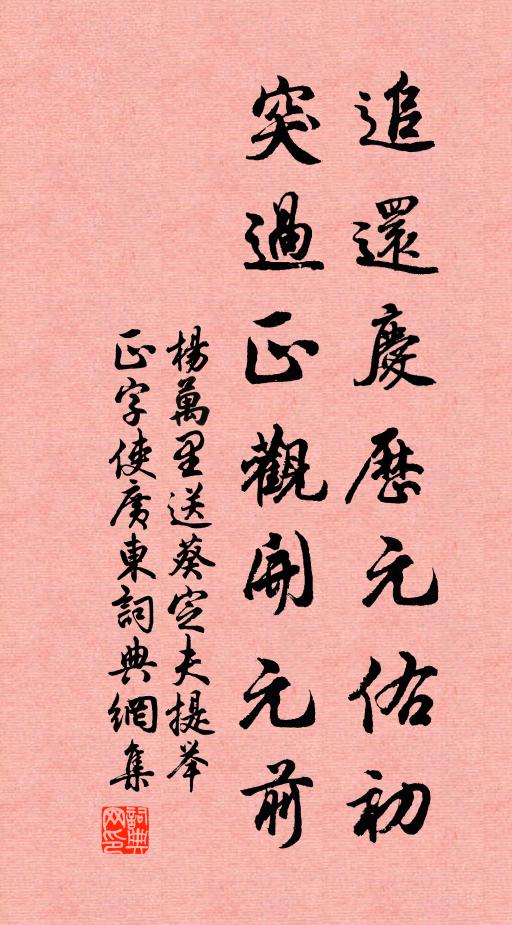 追還慶歷元佑初
突過正觀開元前
楊萬里送葵定夫提举
正字使廣東詞典網集
詞典
网印